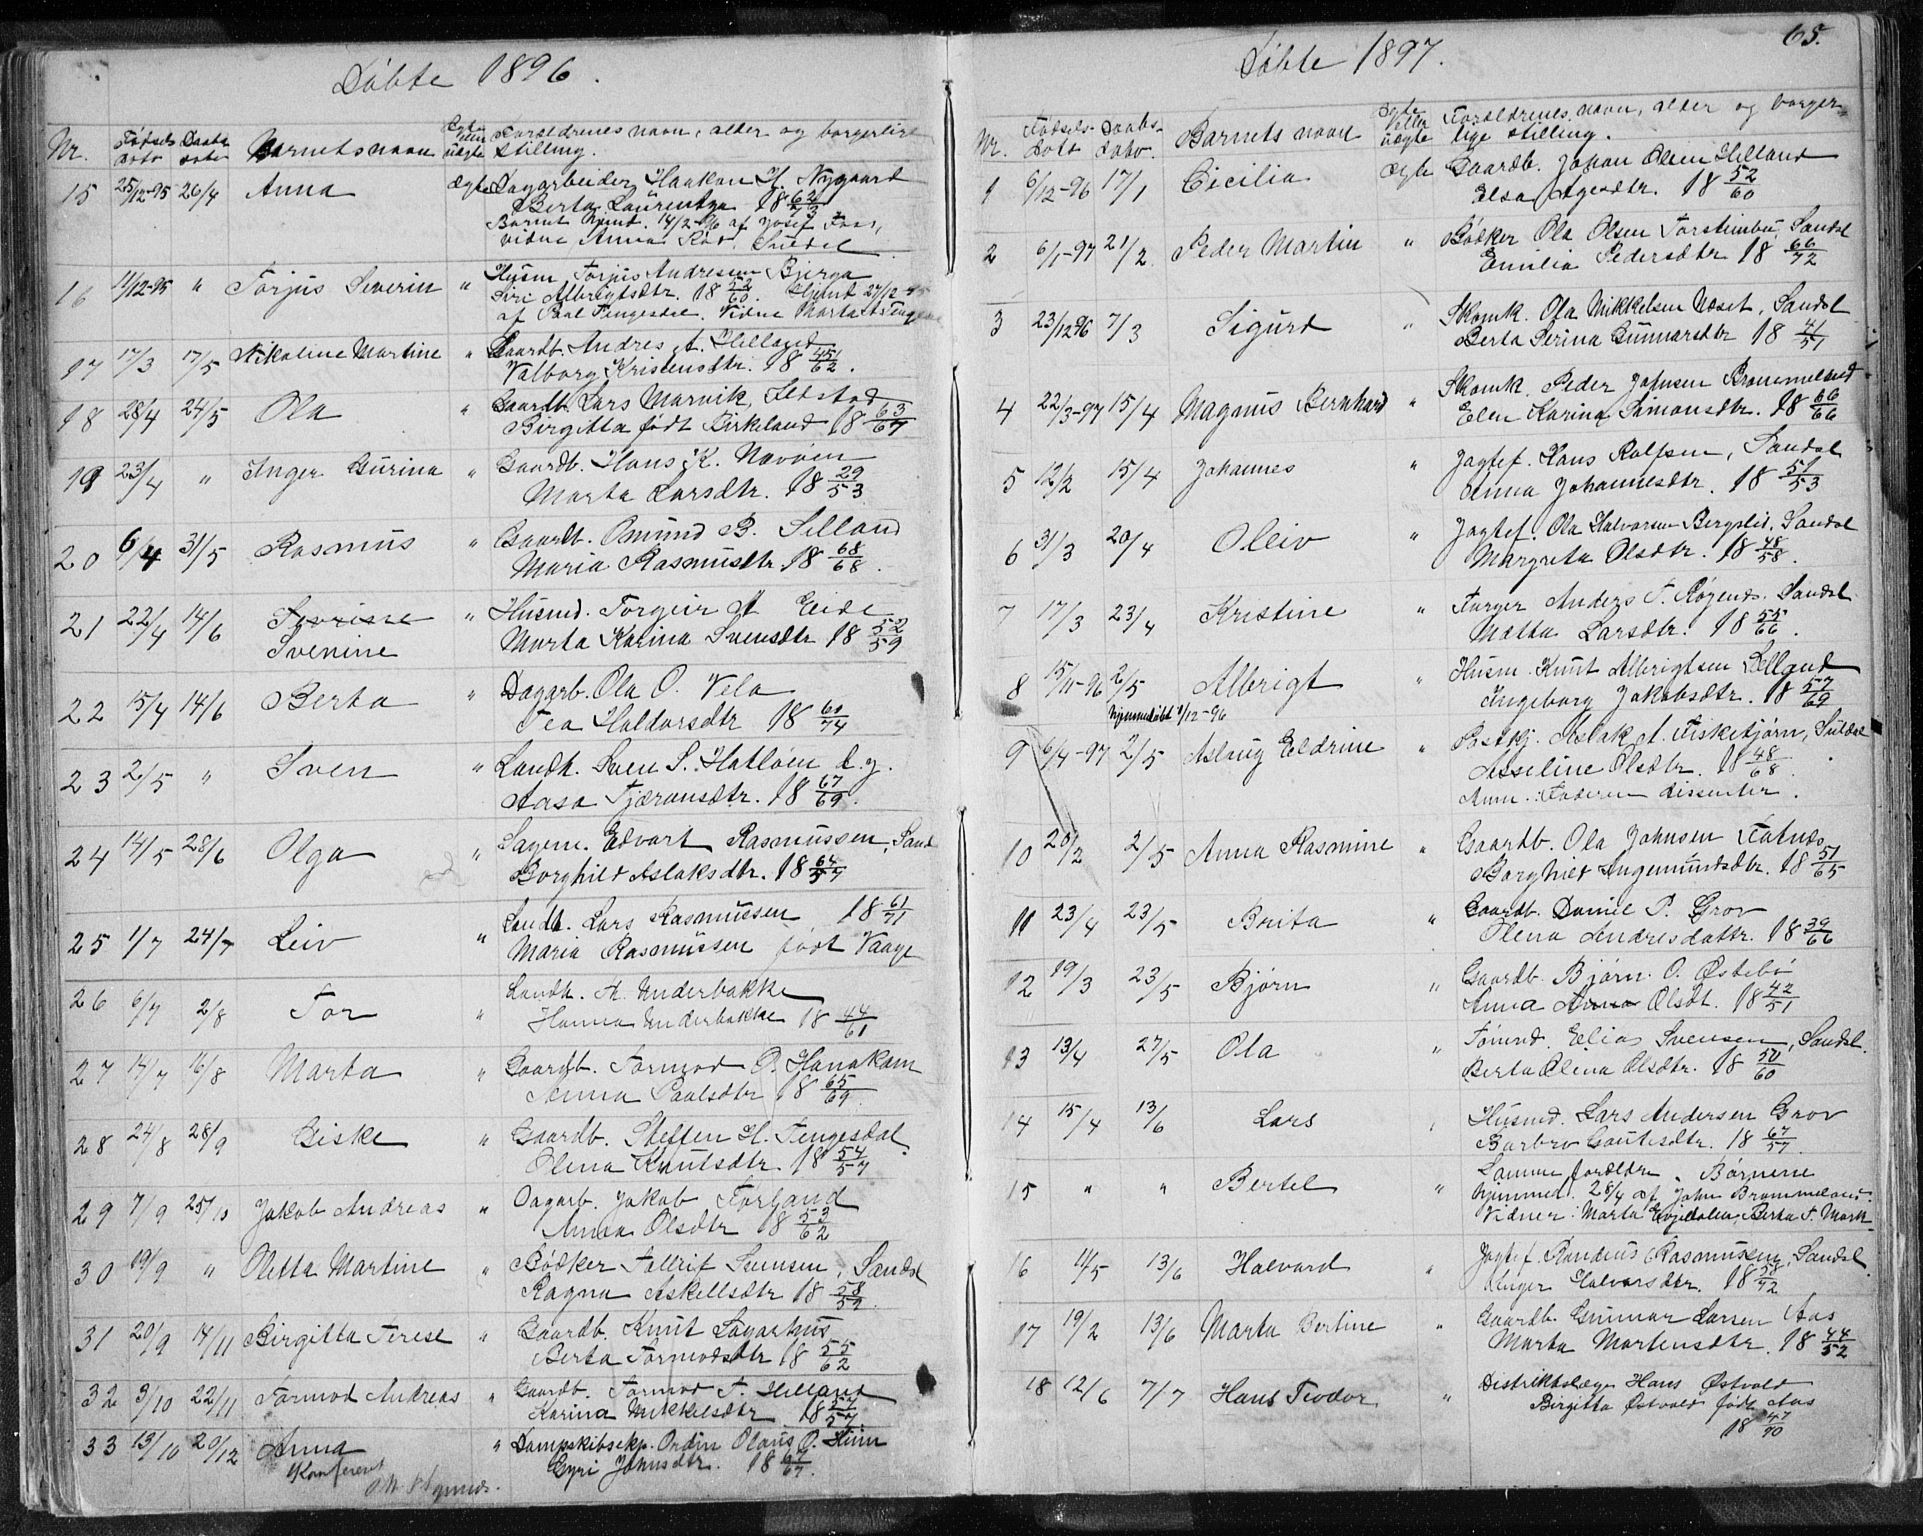 Døbte 1896.
Nr. Fødsels dato Daabs dato Barnets navn Egte eller uægte Forældrenes navn, alder og borgerlige stilling.
15 25/12-95 26/4 Anna Ægte Dagarbeider Haakon H. Nygaard
Berta Laurentza 18
Barnet hjmd. 14/2-96 af Josef Foss,
vidne Anna Rød, Suldal
16 11/12-95 " Torjus Severin " Husm. Torjus Andresen Bjerga
Siri Albrigtsdtr. 18 52/60. Hjmd 27/12-95
af Paal Tengesdal. Vidne Marta Tengesdal
17 17/3 17/5 Nikoline Martine " Gaardb. Andres A. Helland
Valborg Kristensdtr. 18 45/62.
18 28/4 24/5 Ola " Gaardb. Lars Marvik, Jelstad
Birgitta født Birkeland 18 63/67
19 23/4 " Inger Gurina " Gaardb. Hans K. Nævøen
Marta Larsdtr. 18 29/53
20 6/4 31/5 Rasmus " Gaardb. Omund B. Selland
Maria Rasmusdtr 18 68/68.
21 22/4 14/6 Svenine " Husmd. Torgeir A Eide
Marta Karina Svensdtr 18 52/59
22 15/4 14/6 Berta " Dagarb. Ola O. Vela
Tea Haldorsdtr 18 60/74
23 2/5 " Sven " Landh. Sven S. Hatløen d.y.
Aasa Tjæransdtr. 18 67/69.
24 14/5 28/6 Olga " Sagem. Edvart Rasmussen, Sand
Borghild Aslaksdtr. 18 64/57
25 1/7 24/7 Leiv " Landh. Lars Rasmussen 18 61/71
Maria Rasmussen født Vaage
26 6/7 2/8 Tor " Landh. A. Underbakke
Hanna Underbakke 18 44/61
27 14/7 16/8 Marta " Gaardb. Tormod O. Hanakam
Anna Paalsdtr 18 65/69.
28 24/8 28/9 Giske " Gaardb. Steffen H. Tengesdal
Olena Knutsdtr. 18 54/57
29 7/9 25/10 Jakob Andreas " Dagarb. Jakob Førland
Anna Olsdtr 18 53/62
30 19/9 " Oletta Martine " Bødker Tallrif Samsen, Sandsl
Ragna Askellsdtr 18 58/59.
31 20/9 14/11 Birgitta Terese " Gaardb. Knut Lagarhus
Berta Tormodsdtr 18 55/62
32 3/10 22/11 Tormod Andreas " Gaardb. Tormod T. Helland
Karina Mikkelsdtr 18 57/57
33 13/10 20/12 Anna " Dampskibsexp. Ordfm Olaus O. Hiim
Gyri Johnsdtr. 18 67/67.
Konfereret
65.
Døbte 1897.
Nr. Fødselsdato Daabsdato. Barnets navn Egte eller uægte Forældrenes navn, alder og borgerlige stilling.
1 6/12-96 17/1 Cicilia ægte Gaardb. Johan Olsen Helland
Elsa Agesdtr. 18 52/60
2 6/1-97 21/2 Peder Martin " Bødker Ola Olsen Torstenbu, Sandsl
Emilia Pedersdtr 18 66/72
3 23/12 96 7/3 Sigurd " Skomk. Ola Mikkelsen Næset, Sandsl
Berta Serina Gunnarsdtr 18 41/51
4 22/3-97 15/4 Magnus Bernhard " Skomk. Peder Johnsen Brommeland
Elen Karina Simonsdtr. 18 66/66
5 12/2 15/4 Johannes " Jagtef. Hans Rolfsen, Sandsl
Anna Johannesdtr. 18 51/53
6 31/3 20/4 Oleiv " Jagtef. Ola Halvorsen Bergslid, Sandsl
Margreta Olsdtr. 18 48/58.
7 17/3 23/4 Kristine " Farger Anders T. Røgends. Sandsl.
Mætta Larsdtr. 18 55/66.
8 15/11-96 2/5 Albrigt " Husm. Knut Albrigtsen Helland
hjemmedøbt 1/12-96 Ingeborg Jakobsdtr. 18 57/69
9 6/4-97 2/5 Aslaug Eldrine " Postkj. Aslak A. Fisketjørn, Suldal
Asseline Olsdtr. 18 48/68.
Anm.: Faderen dissenter.
10 20/2 2/5 Anna Rasmine " Gaardb. Ola Johnsen Fatnes
Borghild Ingemundsdtr. 18 51/65
11 23/4 23/5 Brita " Gaardb. Daniel P. Grov
Olena Andresdattr. 18 39/66
12 19/3 23/5 Bjørn " Gaardb. Bjørn O. Østebø
Anna Olsdt. 18 42/51
13 13/4 27/5 Ola " Tømmd. Elias Svensen, Sandsl.
Berta Olina Olsdtr. 18 50/60
14 15/4 13/6 Lars " Husmd. Lars Andersen Grov
Barbro Gautesdtr. 18 67/57.
15 " " Bertel " Samme forældre. Børnene
hjemmed. 28/4 af John Brommeland.
Vidner: Marta Gøildalen, Berta T. Mork
16 11/5 13/6 Halvard " Jagtef. Randeus Rasmussen, Sandsl.
Inger Halvorsdtr. 18 58/72
17 19/2 13/6 Marta Bertine " Gaardb. Gunnar Larsen Aas
Marta Mortensdtr. 18 44/52
18 12/6 7/7 Hans Teodor " Distriktslæge Hans Østvold
Birgitta Østvold født Aas
18 47/70